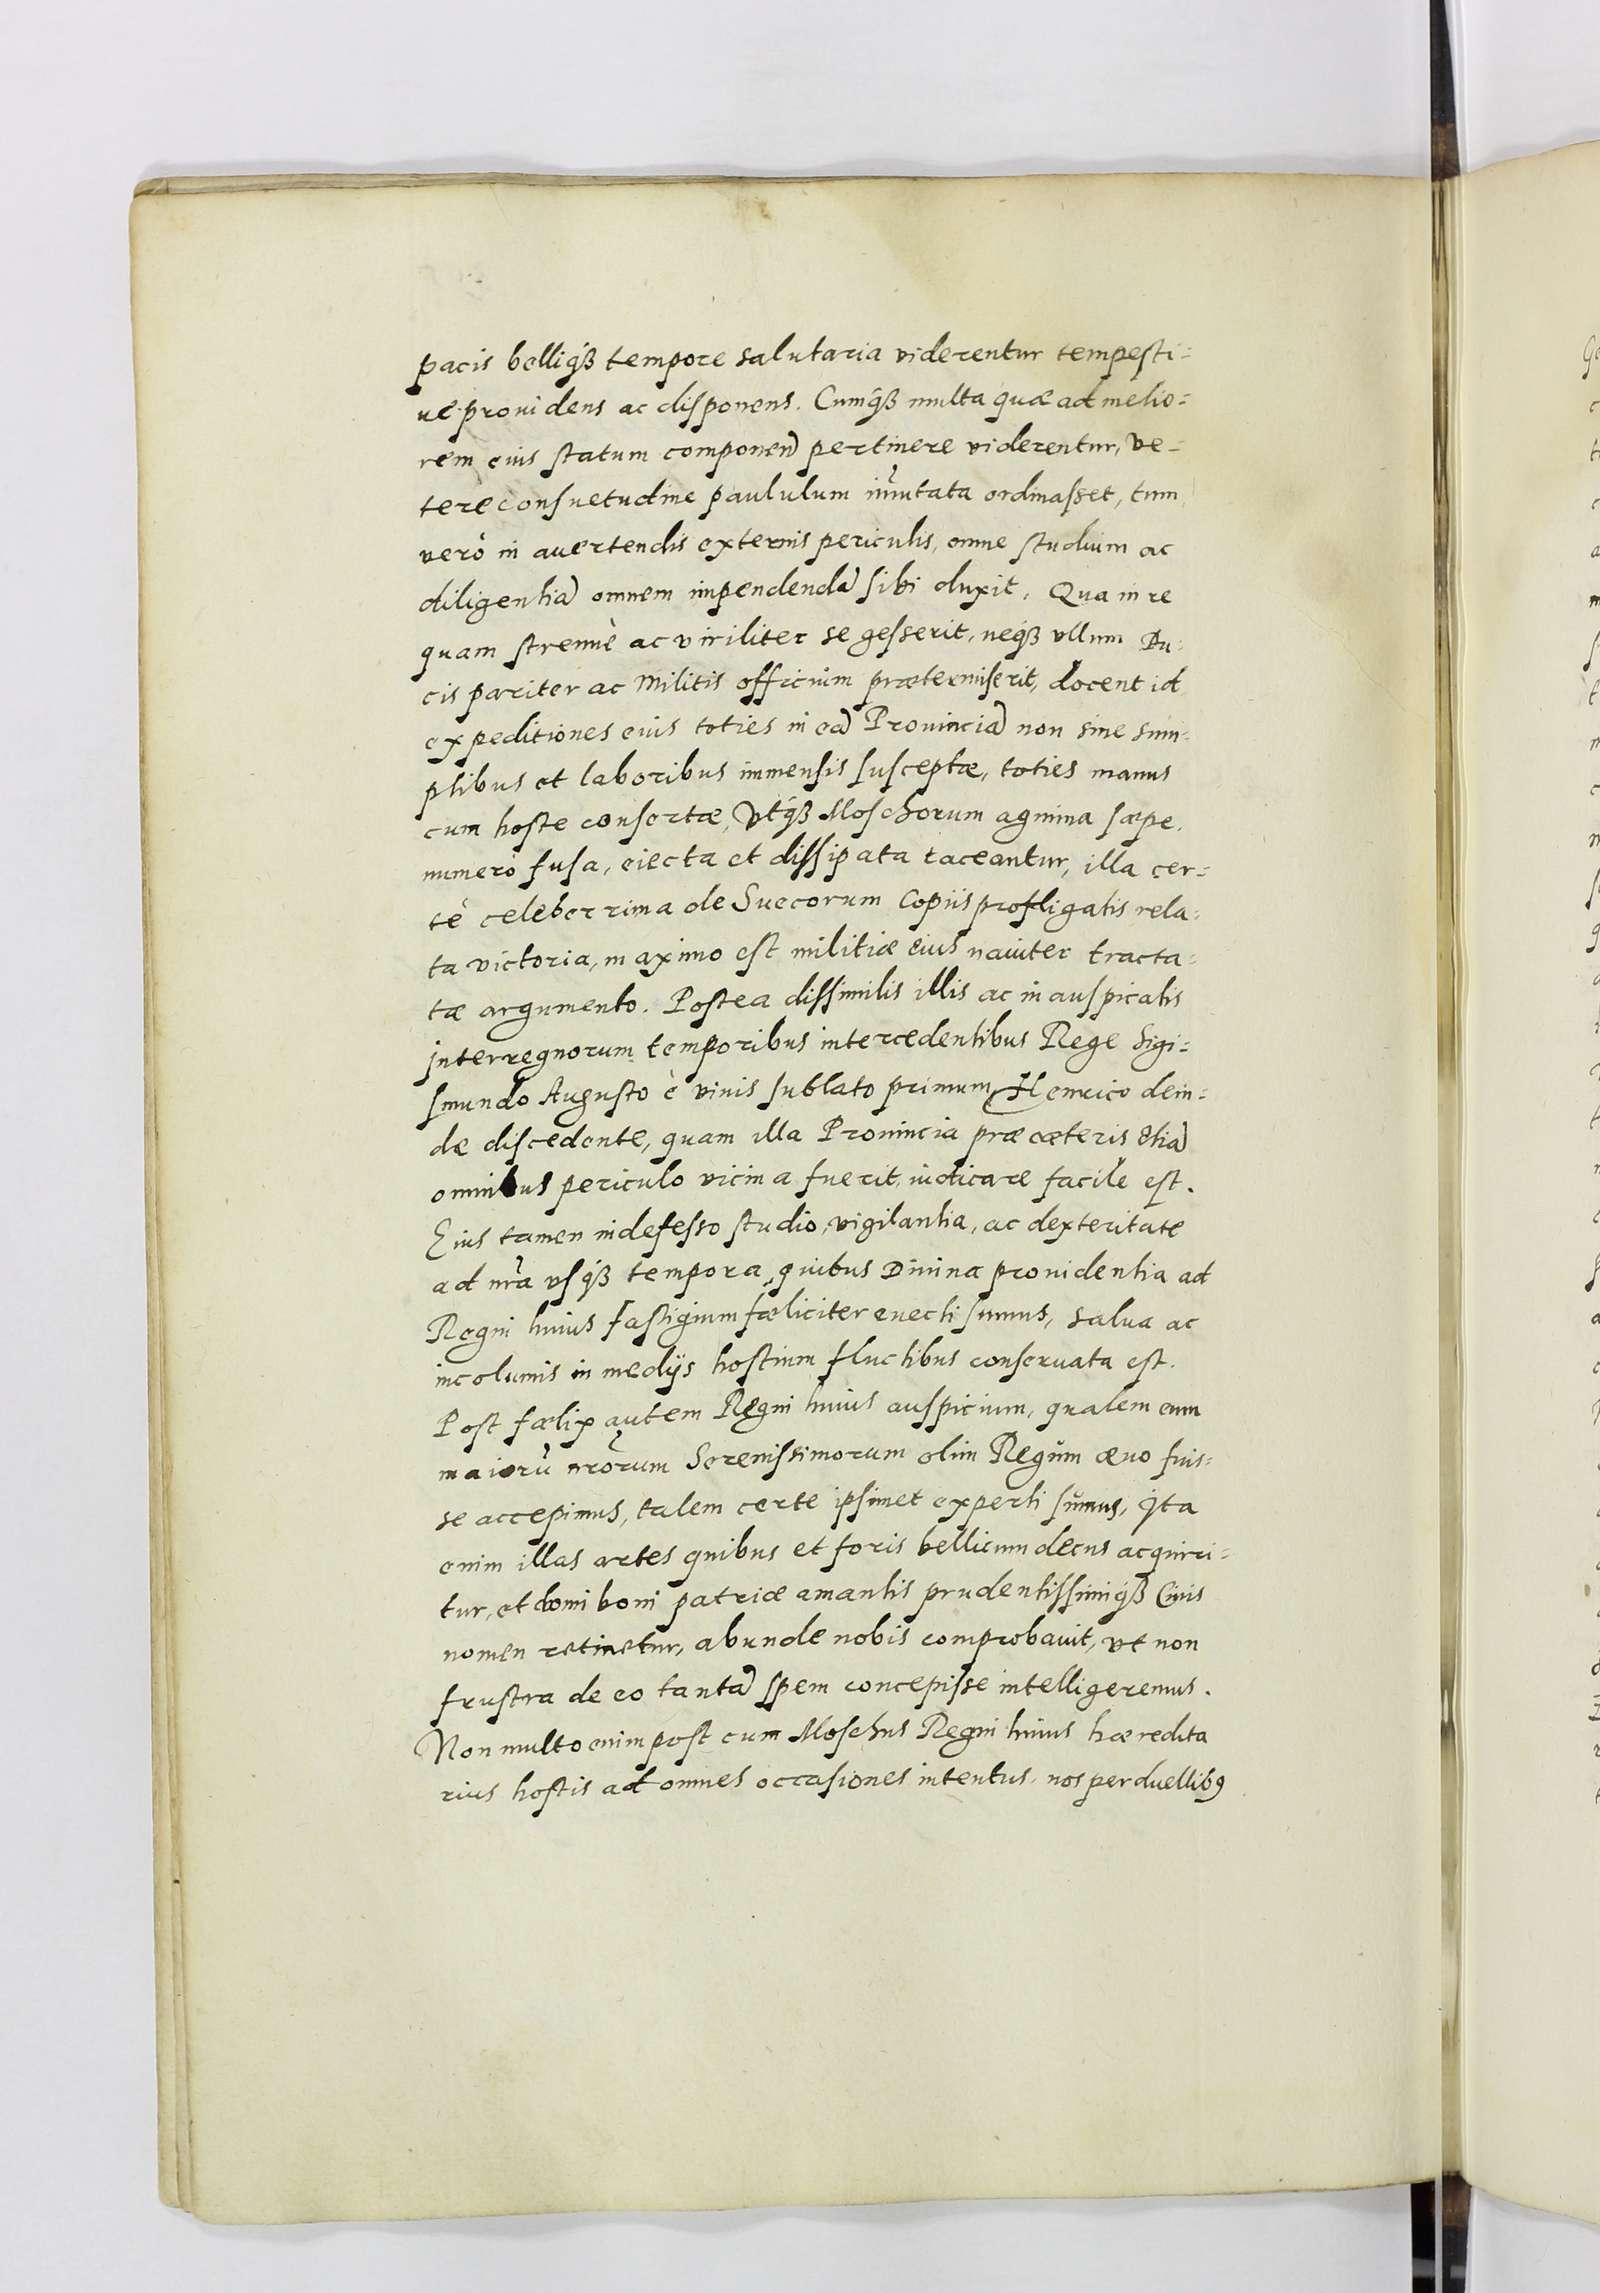 pacis belliqꝫ tempore salutaria viderentur tempesti=
ue prouidens ac disponens. Cumqꝫ multa quæ ad melio=
rem eius statum componend̄ pertinere viderentur, ve=
tere consuetudine paululum im̄utata ordinasset, tum
verò in auertendis externis periculis, omne studium ac
diligentiā omnem impendendā sibi duxit. Qua in re
quam strenuè ac viriliter se gesserit, neqꝫ vllum Du=
cis pariter ac Militis officium prætermiserit, docent id
expeditiones eius toties in eā Prouinciā non sine sum=
ptibus et laboribus immensis susceptæ, toties manus
cum hoste consertæ, Vtqꝫ Moschorum agmina sæpe
numerò fusa, eiecta et dissipata taceantur, illa cer=
tè celeberrima de Suecorum Copiis profligatis rela=
ta victoria, maximo est militiæ eius nauiter tracta=
tæ argumento. Postea dissimilis illis ac inauspicatis
jnterregnorum temporibus intercedentibus Rege Sigi=
smundo Augusto è viuis sublato primum, Henrico dein=
de discedente, quam illa Prouincia præ cæteris etiā
omnibus periculo vicina fuerit, iudicare facile est.
Eius tamen indefesso studio, vigilantia, ac dexteritate
ad nr̄a vsqꝫ tempora, quibus Diuina prouidentia ad
Regni huius fastigium fæliciter euecti sumus, salua ac
incolumis in medijs hostium fluctibus conseruata est.
Post fælix autem Regni huius auspicium, qualem eum
maiorū nr̄orum Serenissimorum olim Regum æuo fuis=
se accepimus, talem certe ipsimet experti sumus, jta
enim illas artes quibus et foris bellicum decus acquiri=
tur, et domi boni patriæ amantis prudentissimiqꝫ Ciuis
nomen retinetur, abunde nobis comprobauit, vt non
frustra de eo tantā spem concepisse intelligeremus.
Non multo enim post cum Moschus Regni huius hæredita
rius hostis ad omnes occasiones intentus, nos perduellibꝯ